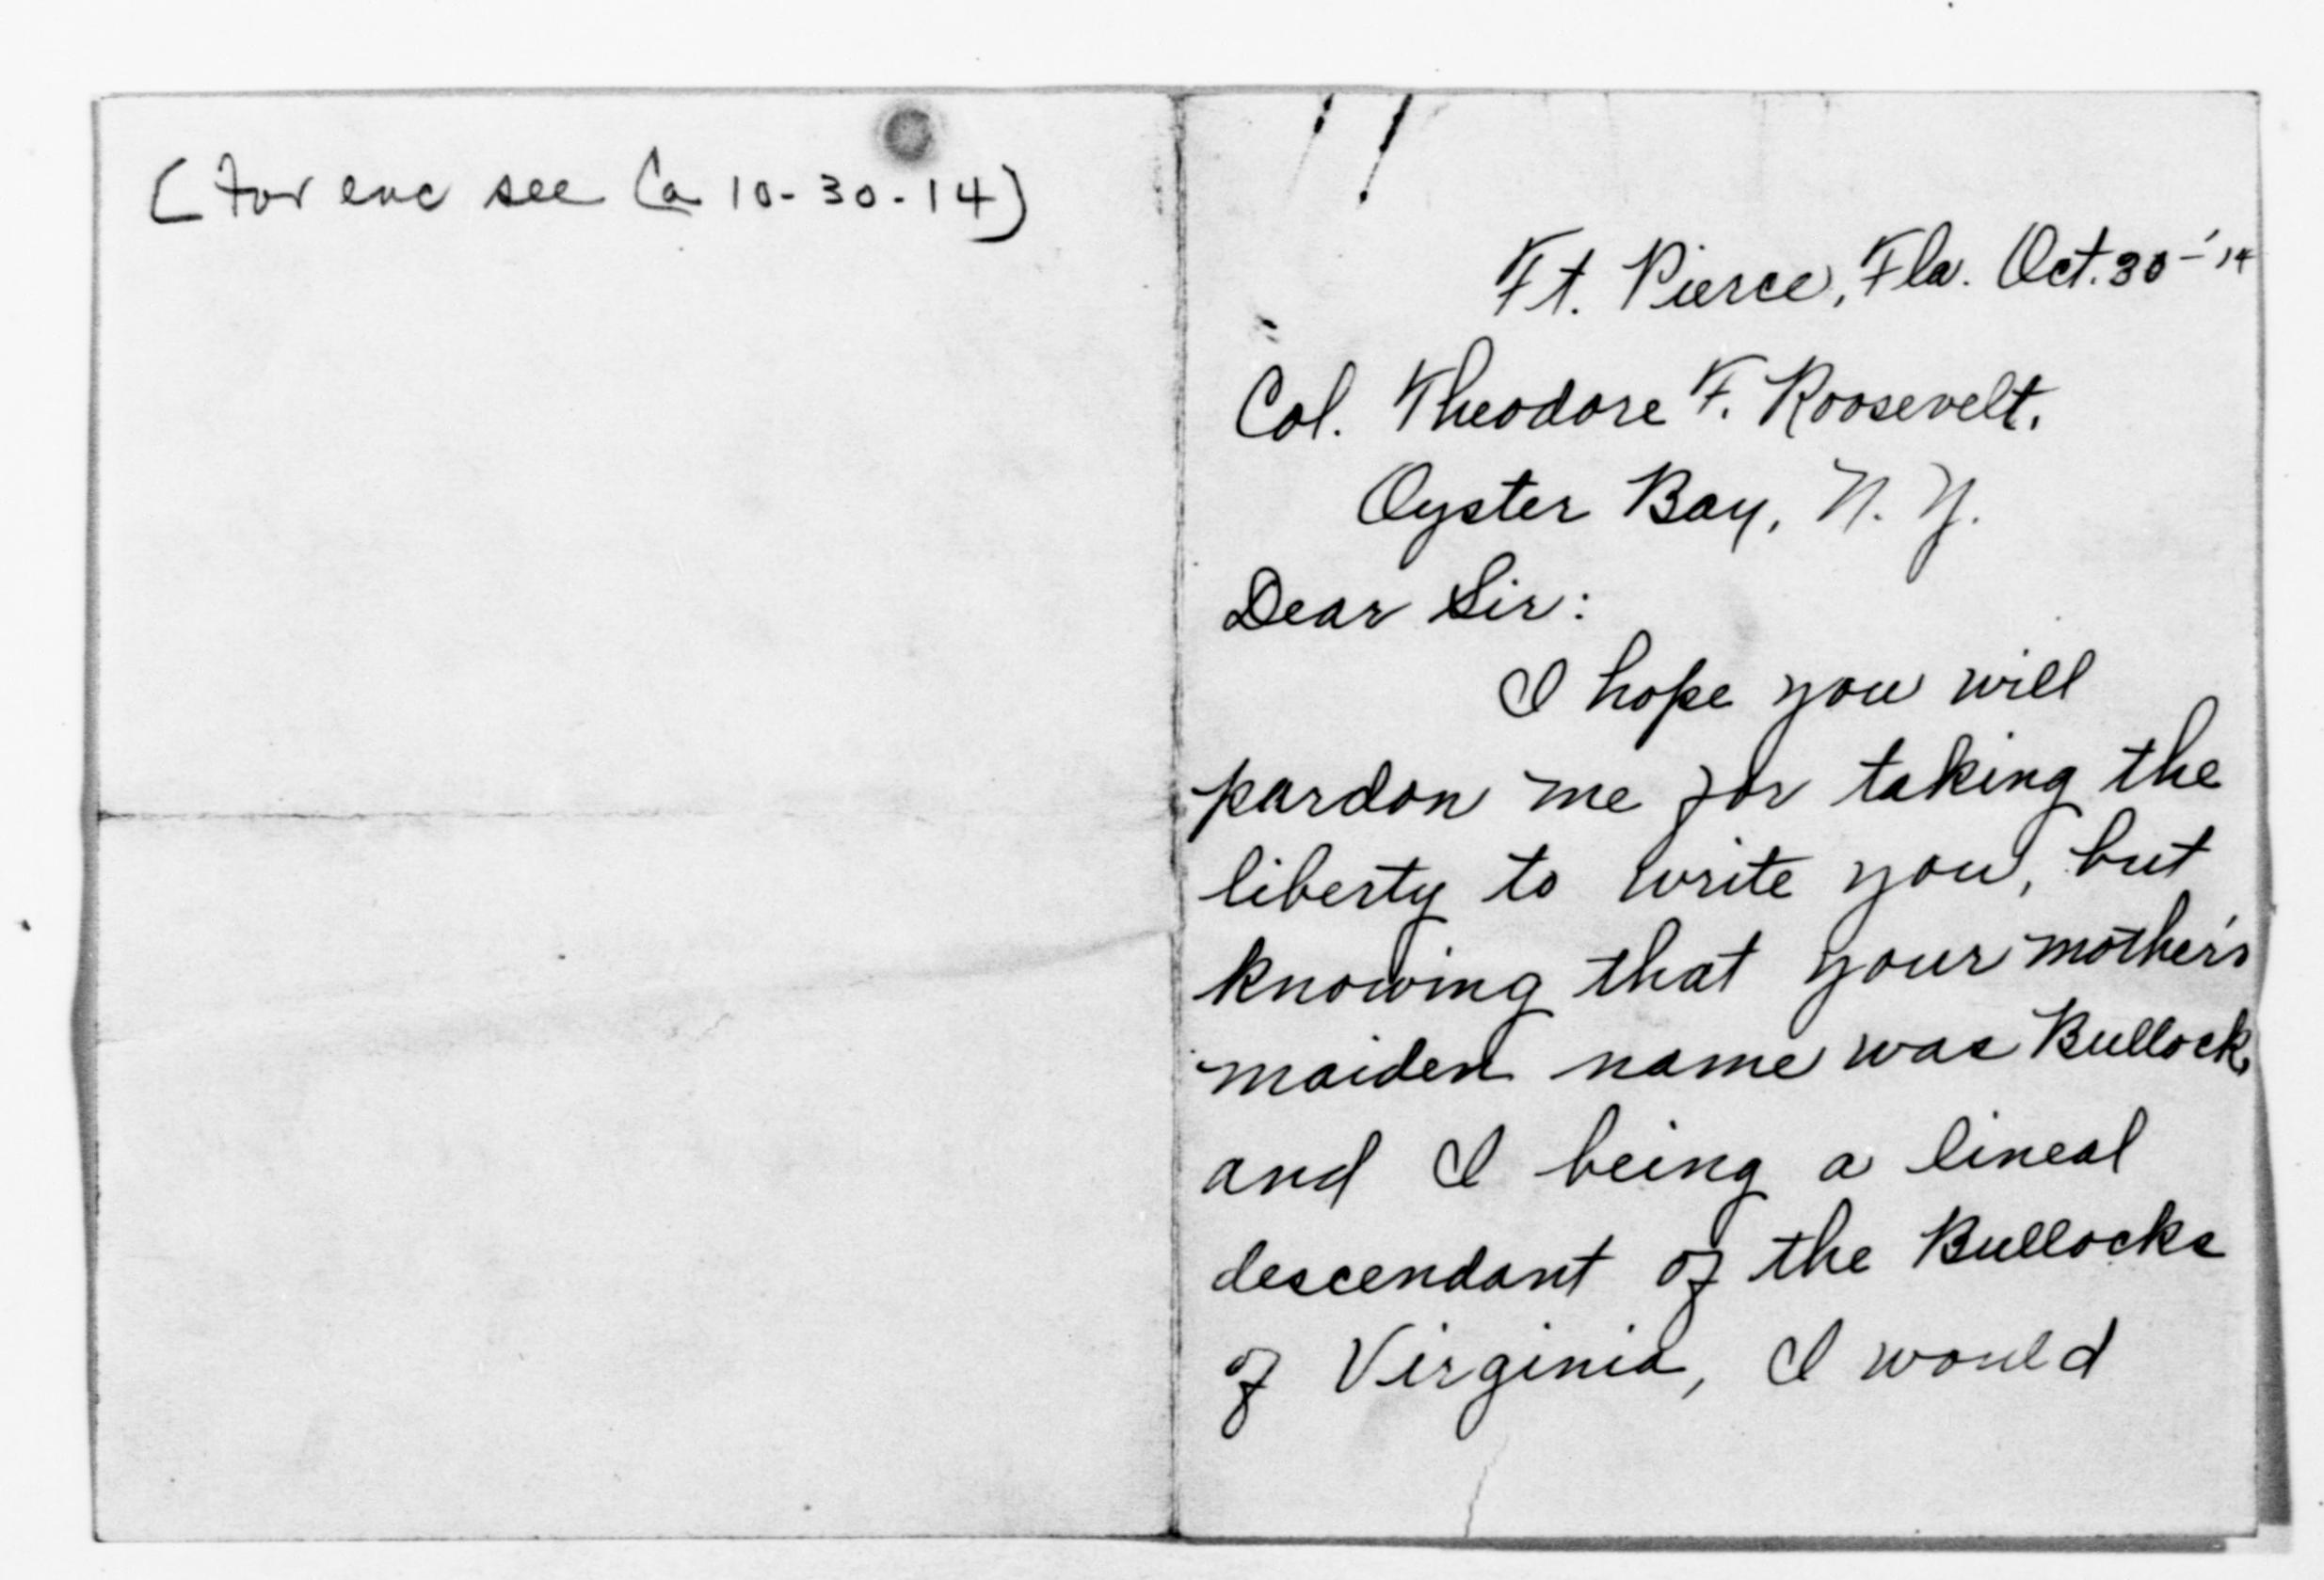 (For enc see Ca 10-30-14)
Ft. Pierce, Fla. Oct. 30-'14
Col. Theodore F. Roosevelt.
Oyster Bay, N. Y.
Dear Sir:
I hope you will
pardon me for taking the
liberty to write you, but
knowing that your mother's
maiden name was Bullock,
and I being a lineal
descendant of the Bullocks
of Virginia, I would